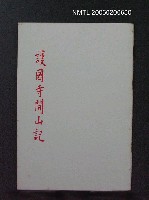 NMTL 20050200650
護國寺開山記